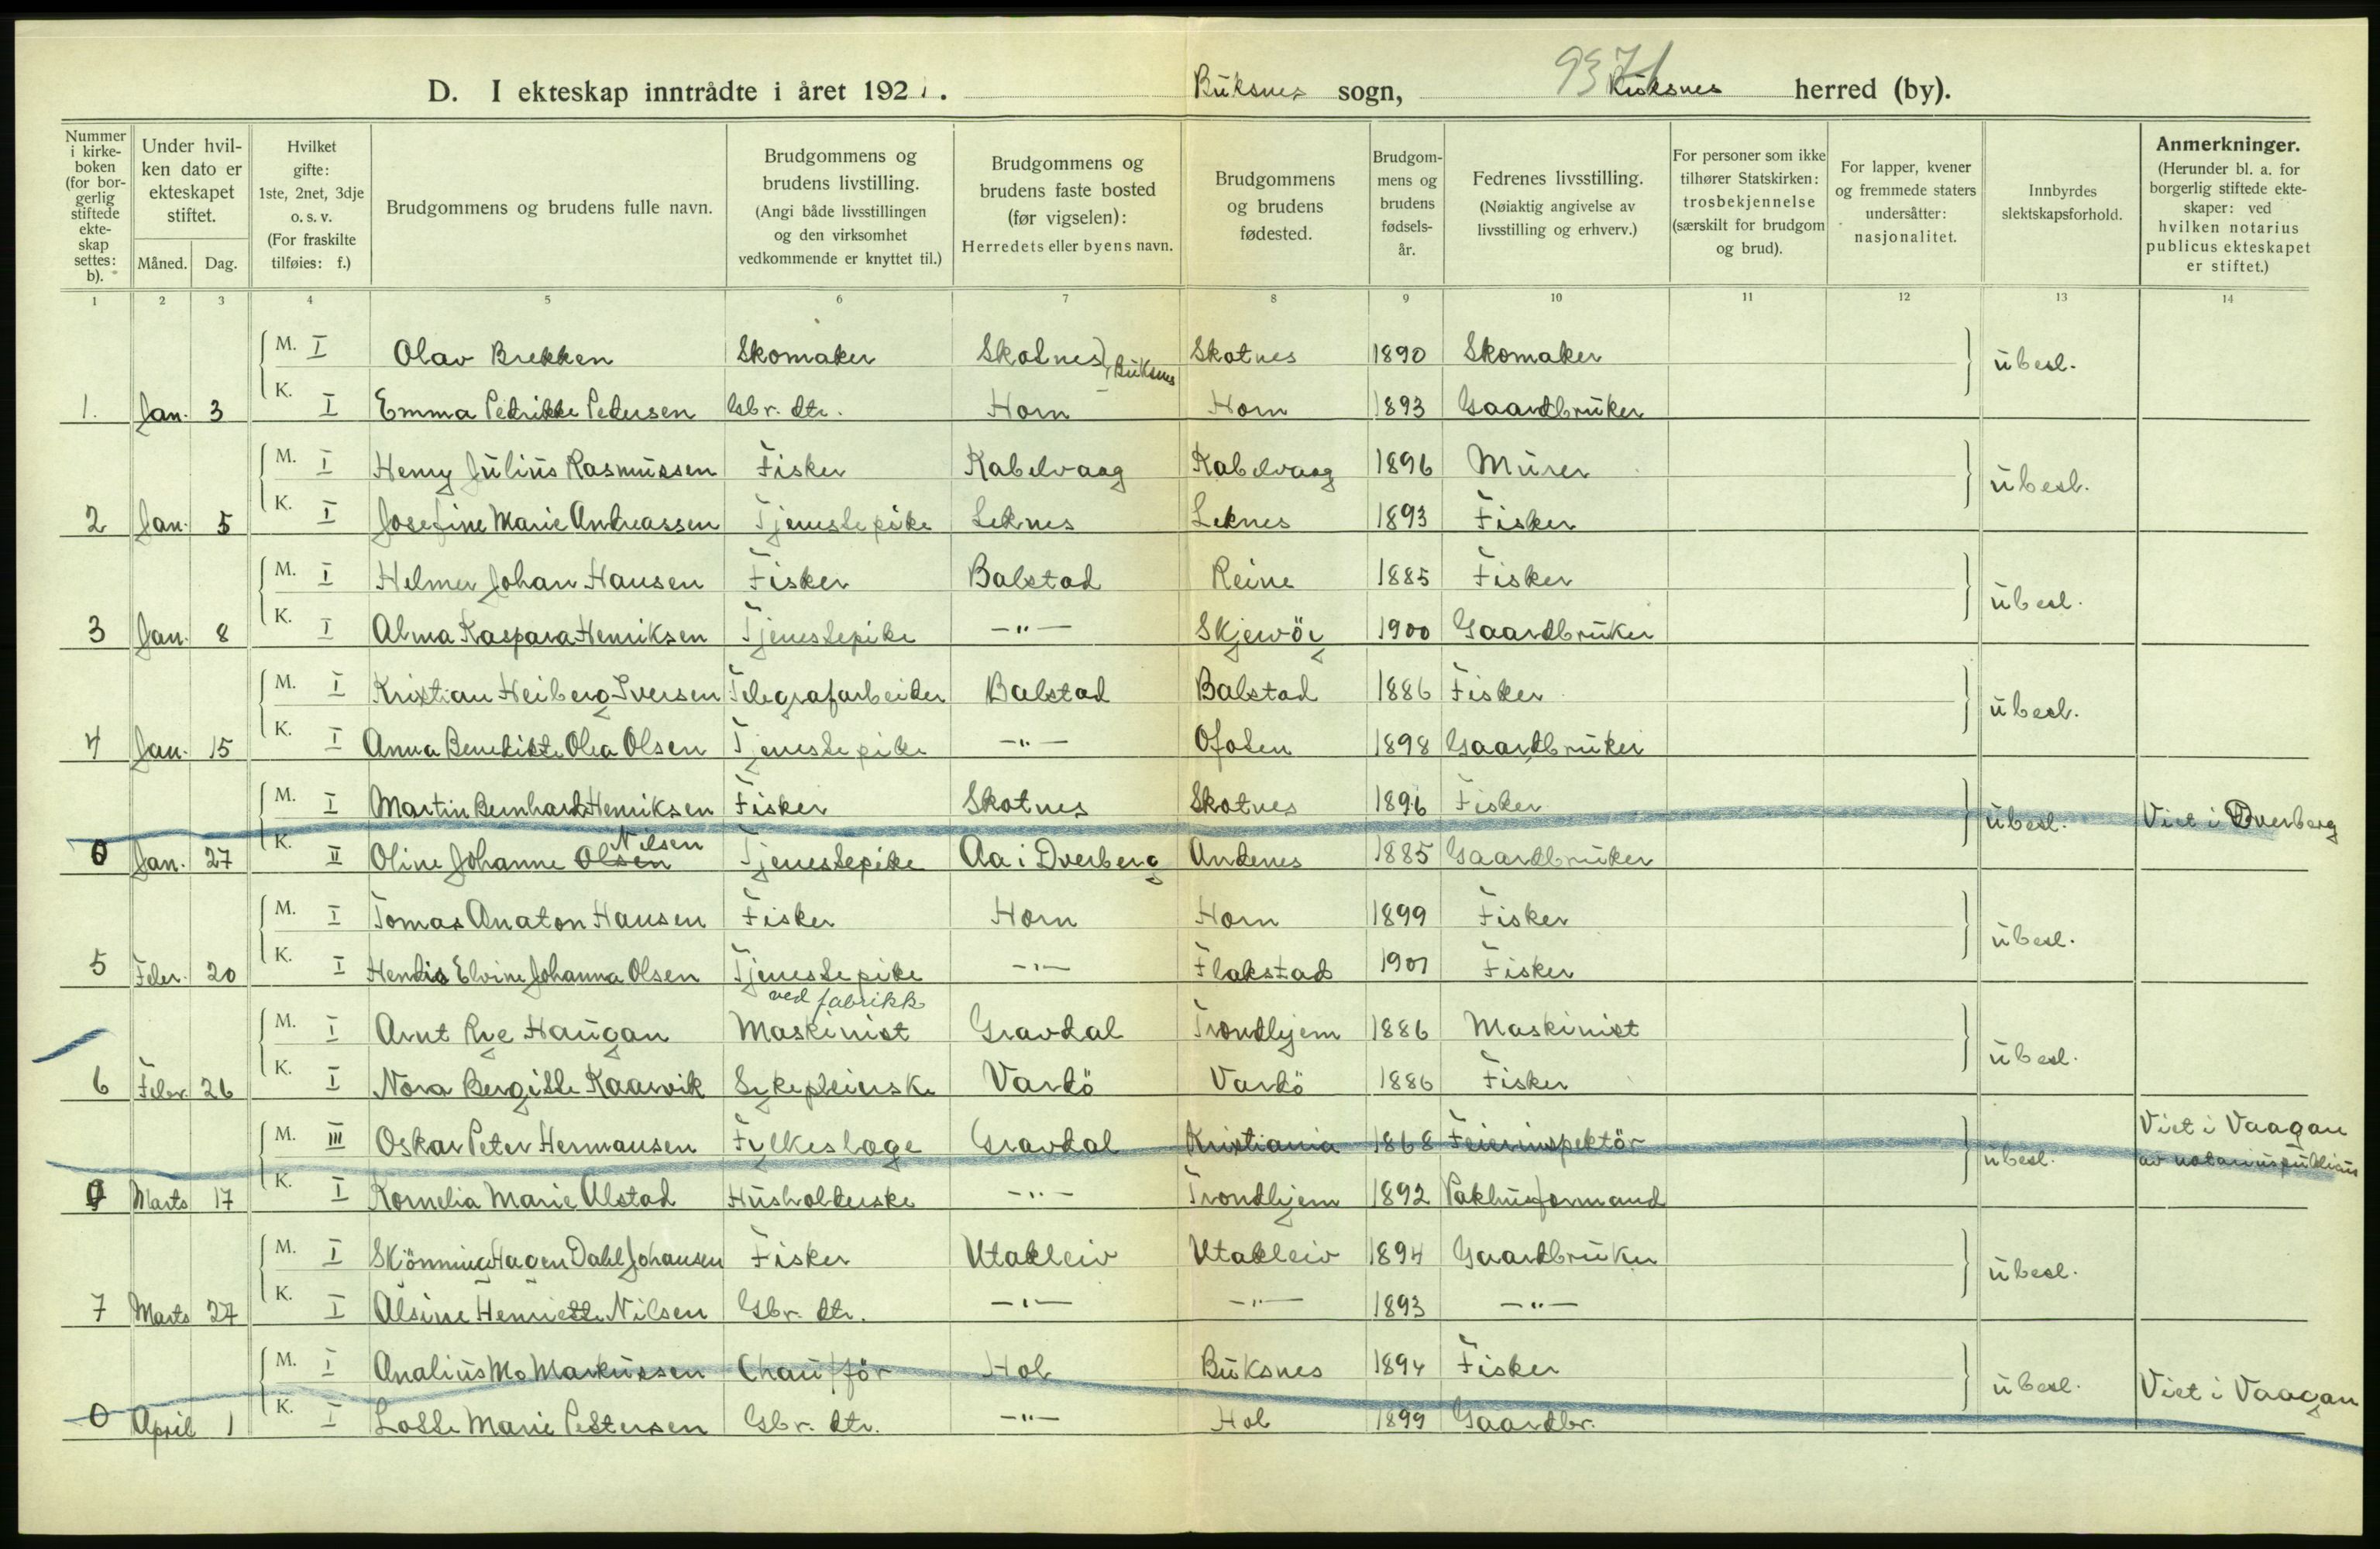 937
D. I ekteskap inntrådte i året 1921. Buksnes sogn, Buksnes herred (by).
Nummer i kirkeboken (for borgerlig stiftede ekteskap settes: b).
Under hvilken dato er ekteskapet stiftet.
Måned. Dag.
Hvilket gifte: 1ste, 2net, 3dje o. s. v. (For fraskilte tilføies: f.)
Brudgommens og brudens fulle navn.
Brudgommens og brudens livstilling. (Angi både livsstillingen og den virksomhet vedkommende er knyttet til.)
Brudgommens og brudens faste bosted (før vigselen): Herredets eller byens navn.
Brudgommens og brudens fødested.
Brudgommens og brudens fødselsår.
Fedrenes livsstilling. (Nøiaktig angivelse av livsstilling og erhverv.)
For personer som ikke tilhører Statskirken: trosbekjennelse (særskilt for brudgom og brud).
For lapper, kvener og fremmede staters undersåtter: nasjonalitet.
Innbyrdes slektskapsforhold.
Anmerkninger. (Herunder bl. a. for borgerlig stiftede ekteskaper: ved hvilken notarius publicus ekteskapet er stiftet.)
1 2 3 4 5 6 7 8 9 10 11 12 13 14
M. I Olav Brekken Skomaker Skotnes, Buksnes Skotnes 1890 Skomaker ubesl.
1. Jan. 3 K. I Emma Pedrikke Pedersen Gbr. dtr. Horn Horn 1893 Gaardbruker
M. I Henry Julius Rasmussen Fisker Kabelvaag Kabelvaag 1896 Murer ubesl.
2 Jan. 5 K. I Josefine Marie Andreassen Tjenestepike Leknes Leknes 1893 Fisker
M. I Helmer Johan Hansen Fisker Balstad Reine 1885 Fisker ubesl.
3 Jan. 8 K. I Alma Kaspara Henriksen Tjenestepike —"— Skjervöy 1900 Gaardbruker
M. I Kristian Heiberg Iversen Telegrafarbeider Balstad Balstad 1886 Fisker ubesl.
4 Jan. 15 K. I Anna Benedikte Olea Olsen Tjenestepike —"— Ofoten 1898 Gaardbruker
M. I Martin Bernhard Henriksen Fisker Skotnes Skotnes 1896 Fisker ubesl. Viet i Dverberg
0 Jan. 27 K. II Oline Johanne Olsen Nilsen Tjenestepike Aa i Dverberg Andenes 1885 Gaardbruker
M. I Tomas Anaton Hansen Fisker Horn Horn 1899 Fisker ubesl.
5 Febr. 20 K. I Hendis Elvine Johanna Olsen Tjenestepike —"— Flakstad 1901 Fisker
ved fabrikk
M. I Arnt Rye Haugan Maskinist Gravdal Trondhjem 1886 Maskinist ubesl.
6 Febr. 26 K. I Nora Bergitte Kaarvik Sykepleierske Vardö Vardö 1886 Fisker
M. III Oskar Peter Hermansen Fylkeslæge Gravdal Kristiania 1868 Feierinspektör ubesl. Viet i Vaagan
av notarius publicus
0 Marts 17 K. I Kornelia Marie Alstad Husholderske —"— Trondhjem 1892 Pakhusformand
M. I Skönning Hagen Dahl Johansen Fisker Utakleiv Utakleiv 1894 Gaardbruker ubesl.
7 Marts 27 K. I Alsine Henriette Nilsen Gbr. dtr. —"— —"— 1893 —"—
M. I Analius Mo Markussen Chauffør Hol Buksnes 1894 Fisker ubesl. Viet i Vaagan
0 April 1 K. I Lotte Marie Pettersen Gbr. dtr. —"— Hol 1899 Gaardbr.